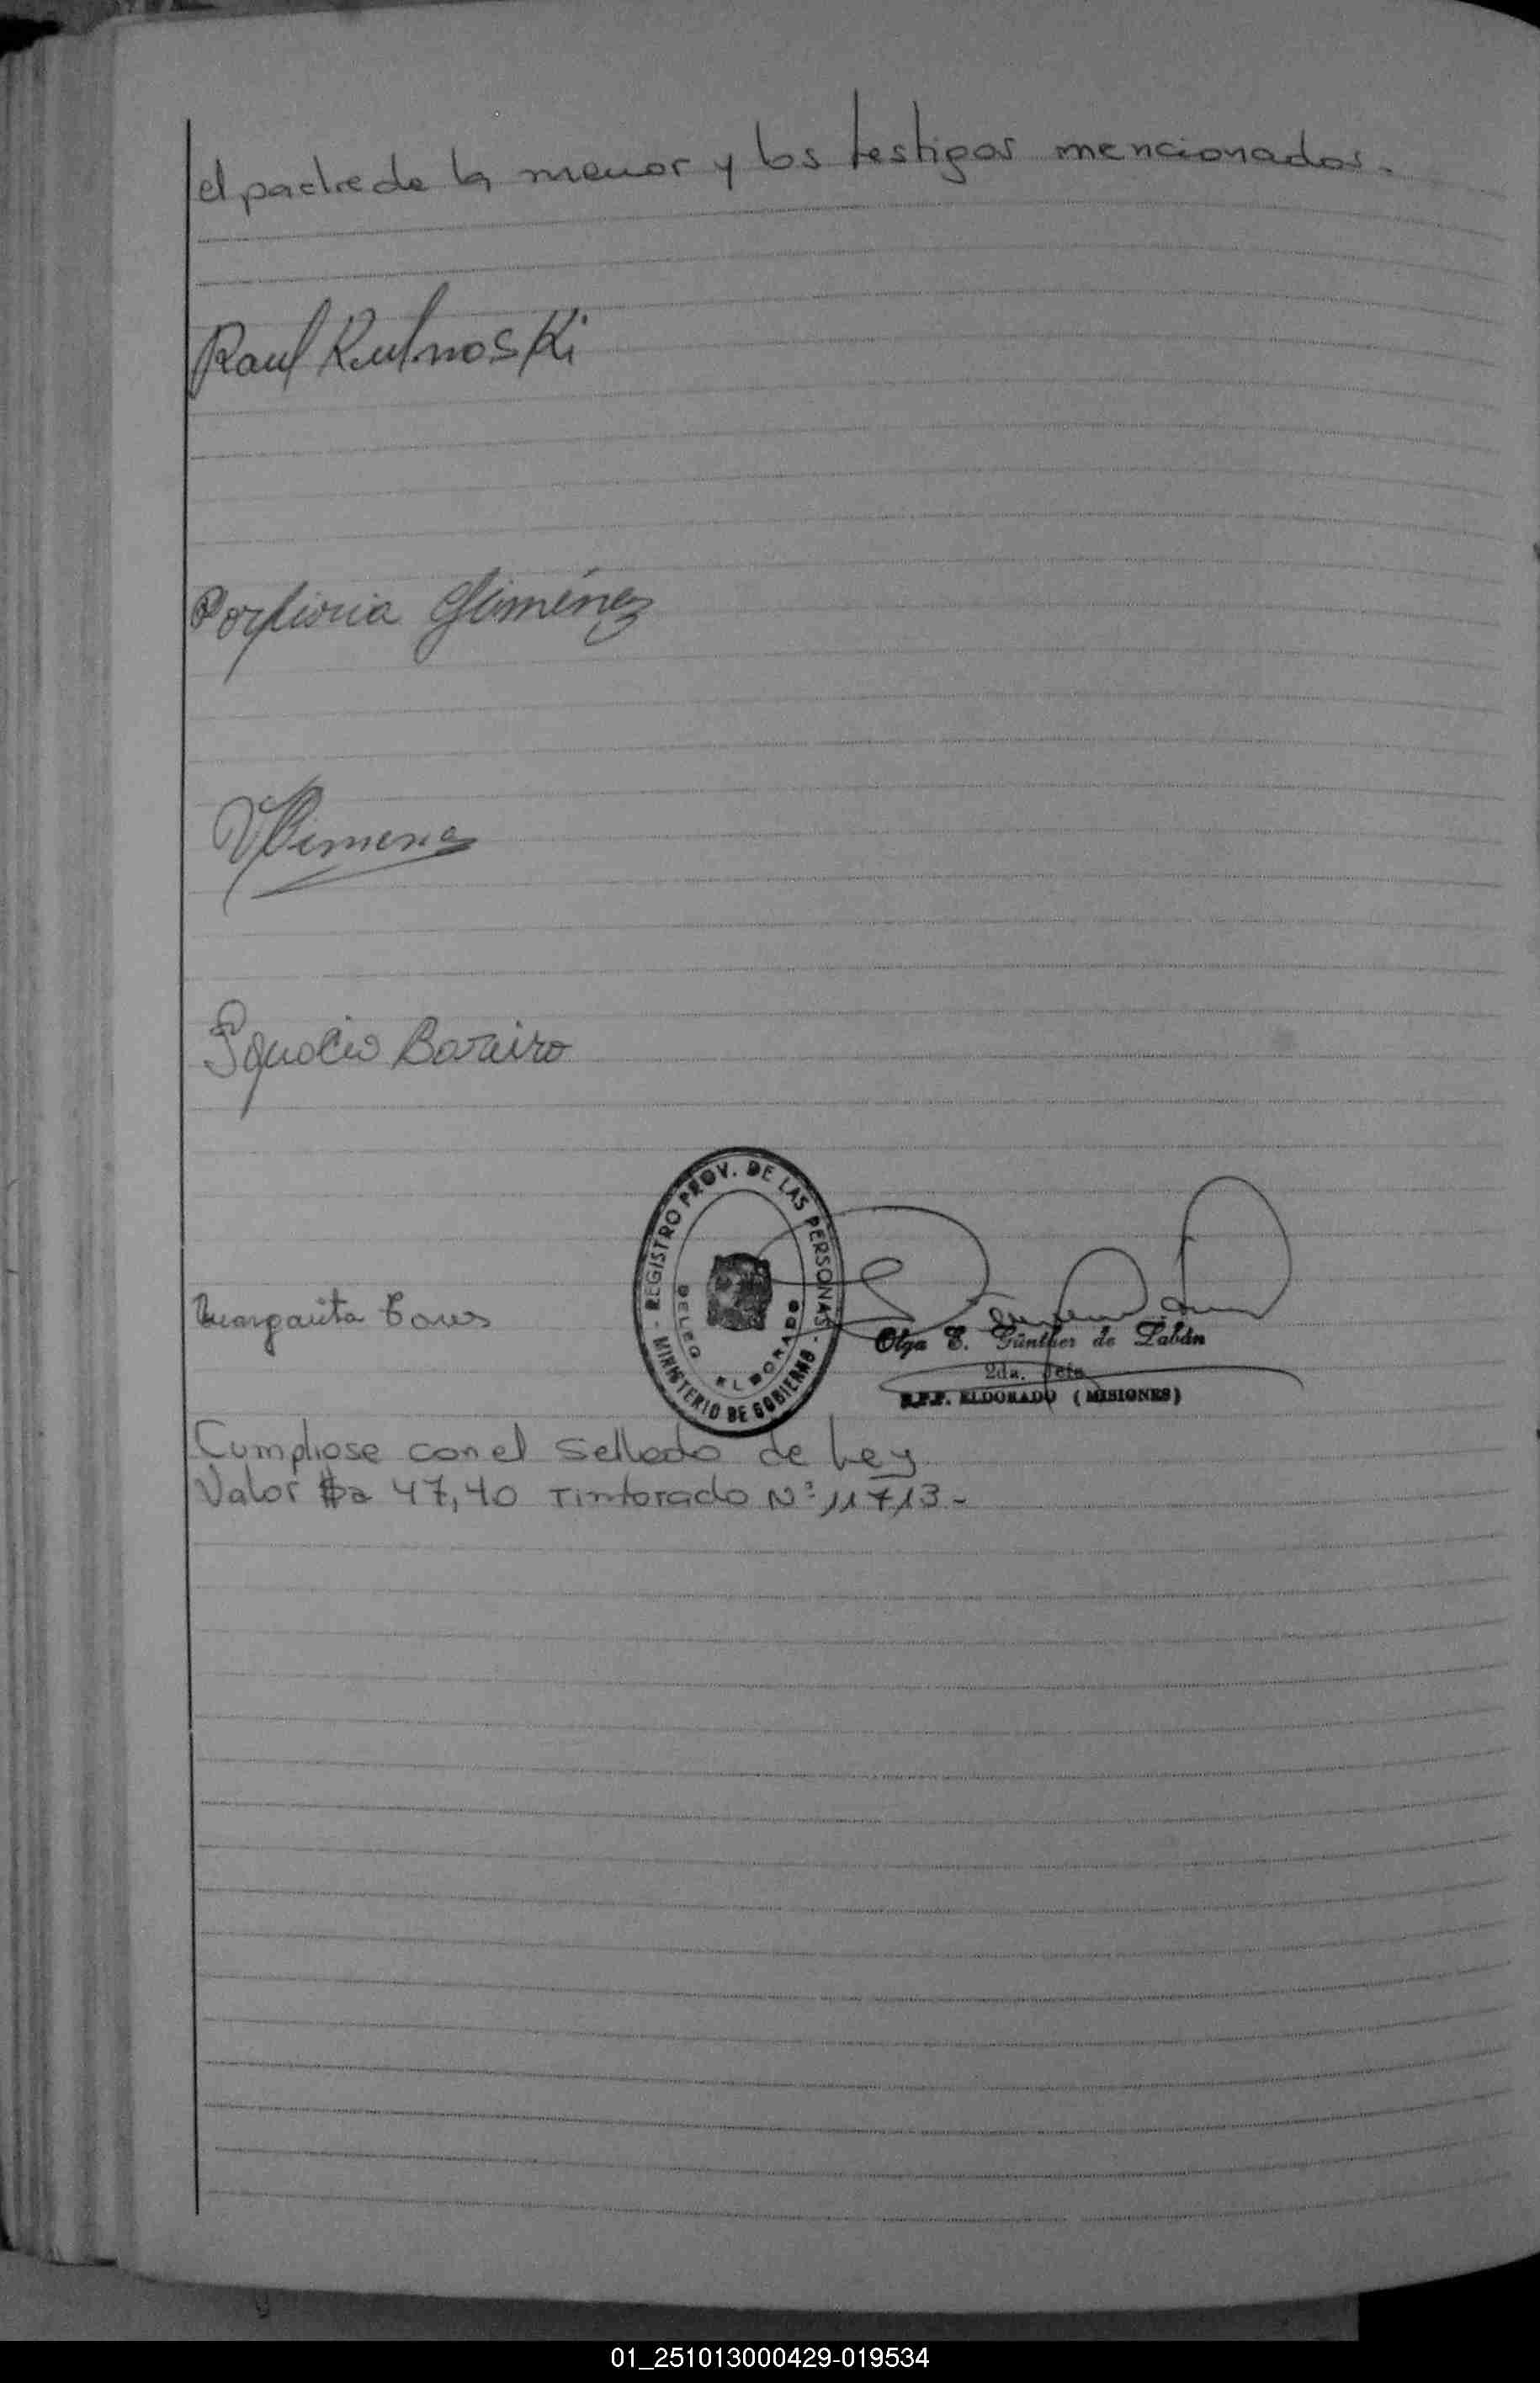 el padre de la menor y los testigos mencionados.
Raul Rutnoski
Porfiria Giménez
VGimenez
Ignacio Bareiro
REGISTRO PROV. DE LAS PERSONAS - MINISTERIO DE GOBIERNO -
DELEG. ELDORADO
Margarita
Olga E. Günther de Labán
2da. Jefe
R.P.P. ELDORADO (MISIONES)
Cumpliose con el Sellado de Ley
Valor $a 47,40 Timbrado Nº 11713-
01_251013000429-019534